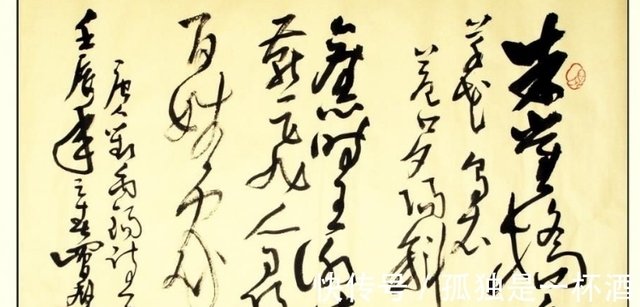 朱雀桥
草花乌衣
巷口夕阳斜
旧时王谢
燕飞入寻
百姓家
唐人刘禹锡诗
壬辰年之春
快传号 / 孤独是一杯酒